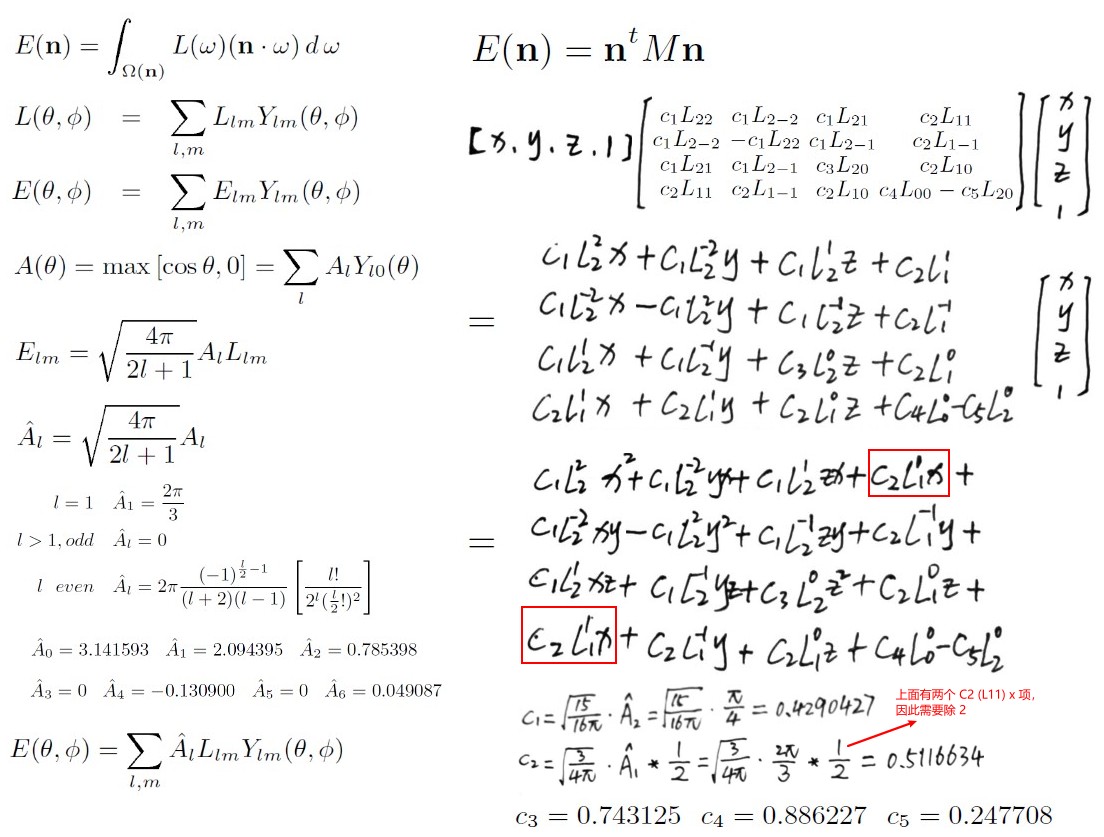 E(n) = ∫_Ω(n) L(ω)(n · ω) d ω
L(θ, ϕ) = ∑_{l,m} L_{lm}Y_{lm}(θ, ϕ)
E(θ, ϕ) = ∑_{l,m} E_{lm}Y_{lm}(θ, ϕ)
A(θ) = max [cos θ, 0] = ∑_l A_lY_{l0}(θ)
E_{lm} = √(4π/(2l + 1)) A_lL_{lm}
Â_l = √(4π/(2l + 1)) A_l
l = 1 Â_1 = 2π/3
l > 1, odd Â_l = 0
l even Â_l = 2π (−1)^{l/2 −1}/((l + 2)(l − 1)) [l!/(2^l(l/2!)^2)]
Â_0 = 3.141593 Â_1 = 2.094395 Â_2 = 0.785398
Â_3 = 0 Â_4 = −0.130900 Â_5 = 0 Â_6 = 0.049087
E(θ, ϕ) = ∑_{l,m} Â_lL_{lm}Y_{lm}(θ, ϕ)
E(n) = n^t M n
[x, y, z, 1] [ c_1L_{22} c_1L_{2−2} c_1L_{21} c_2L_{11} ] [ x
c_1L_{2−2} −c_1L_{22} c_1L_{2−1} c_2L_{1−1} y
c_1L_{21} c_1L_{2−1} c_3L_{20} c_2L_{10} z
c_2L_{11} c_2L_{1−1} c_2L_{10} c_4L_{00} − c_5L_{20} 1 ]
C_1L_2^2x + C_1L_2^{-2}y + C_1L_2^1z + C_2L_1^1 [ x
= C_1L_2^{-2}x − C_1L_2^2y + C_1L_2^{-1}z + C_2L_1^{-1} y
C_1L_2^1x + C_1L_2^{-1}y + C_3L_2^0z + C_2L_1^0 z
C_2L_1^1x + C_2L_1^1y + C_2L_1^0z + C_4L_0^0 − C_5L_2^0 1 ]
C_1L_2^2 x^2 + C_1L_2^{-2}yx + C_1L_2^1zx + C_2L_1^1x +
= C_1L_2^{-2}xy − C_1L_2^2y^2 + C_1L_2^{-1}zy + C_2L_1^{-1}y +
C_1L_2^1xz + C_1L_2^{-1}yz + C_3L_2^0z^2 + C_2L_1^0z +
C_2L_1^1x + C_2L_1^{-1}y + C_2L_1^0z + C_4L_0^0 − C_5L_2^0
C_1 = √(15/16π) · Â_2 = √(15/16π) · π/4 = 0.4290427
上面有两个 C2 (L11) x 项,
因此需要除 2
C_2 = √(3/4π) · Â_1 * 1/2 = √(3/4π) · 2π/3 * 1/2 = 0.5116634
c_3 = 0.743125 c_4 = 0.886227 c_5 = 0.247708